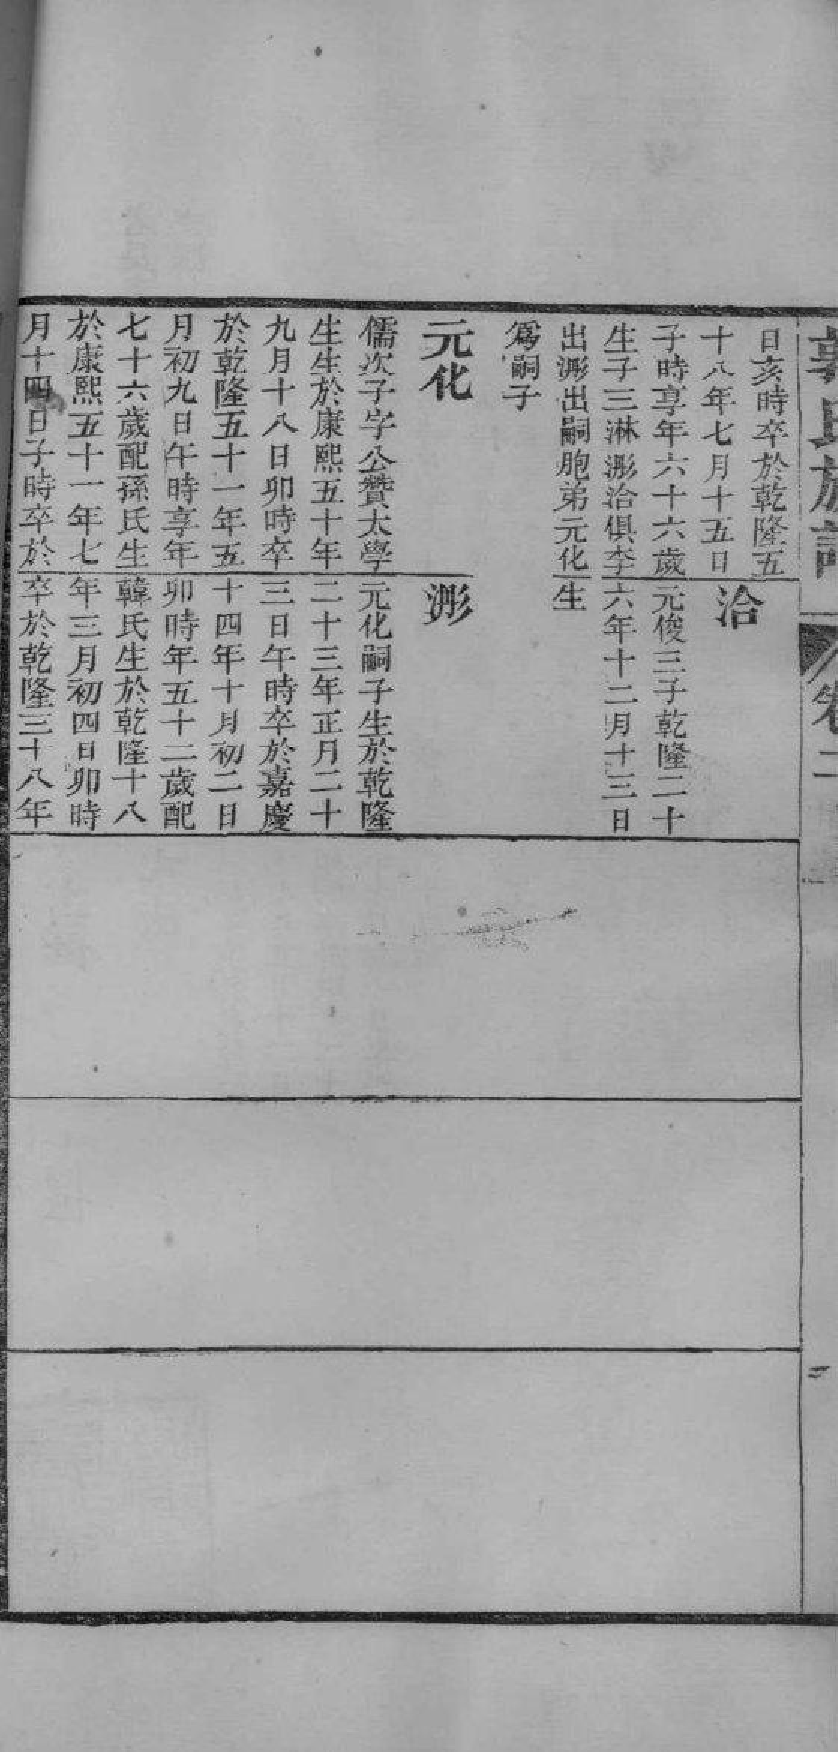 氏族譜
卷二
日亥時卒於乾隆五
十八年七月十五日
子時享年六十六歲
生子三淋浵洽俱李
出浵出嗣胞弟元化
爲嗣子
元化
儒次子字公贊大學
生生於康熙五十年
九月十八日卯時卒
於乾隆五十一年五
月初九日午時享年
七十六歲配孫氏生
於康熙五十一年七
月十四日子時卒於
洽
元俊三子乾隆二十
六年十二月十三日
生
浵
元化嗣子生於乾隆
二十三年正月二十
三日午時卒於嘉慶
十四年十月初二日
卯時年五十二歲配
韓氏生於乾隆十八
年三月初四日卯時
卒於乾隆三十八年